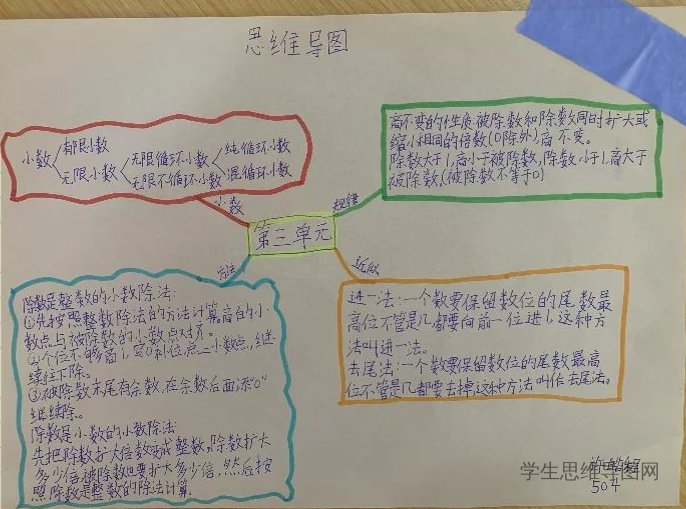 思维导图
小数
有限小数
无限小数
无限循环小数
无限不循环小数
纯循环小数
混循环小数
小数
规律
商不变的性质被除数和除数同时扩大或
缩小相同的倍数(0除外)商不变。
除数大于1,商小于被除数,除数小于1,商大于
被除数。(被除数不等于0)
第三单元
方法
近似
除数是整数的小数除法:
①先按照整数除法的方法计算,商的小
数点与被除数的小数点对齐。
②个位不够商1,写0补位点上小数点,继
续往下除。
③被除数末尾有余数,在余数后面添"0"
继续除。
除数是小数的小数除法:
先把除数扩大倍数变成整数,除数扩大
多少倍,被除数也要扩大多少倍,然后按
照除数是整数的除法计算.
进一法:一个数要保留数位的尾数最
高位不管是几都要向前一位进1,这种方
法叫进一法。
去尾法:一个数要保留数位的尾数最高
位不管是几都要去掉这种方法叫作去尾法。
504
学生思维导图网